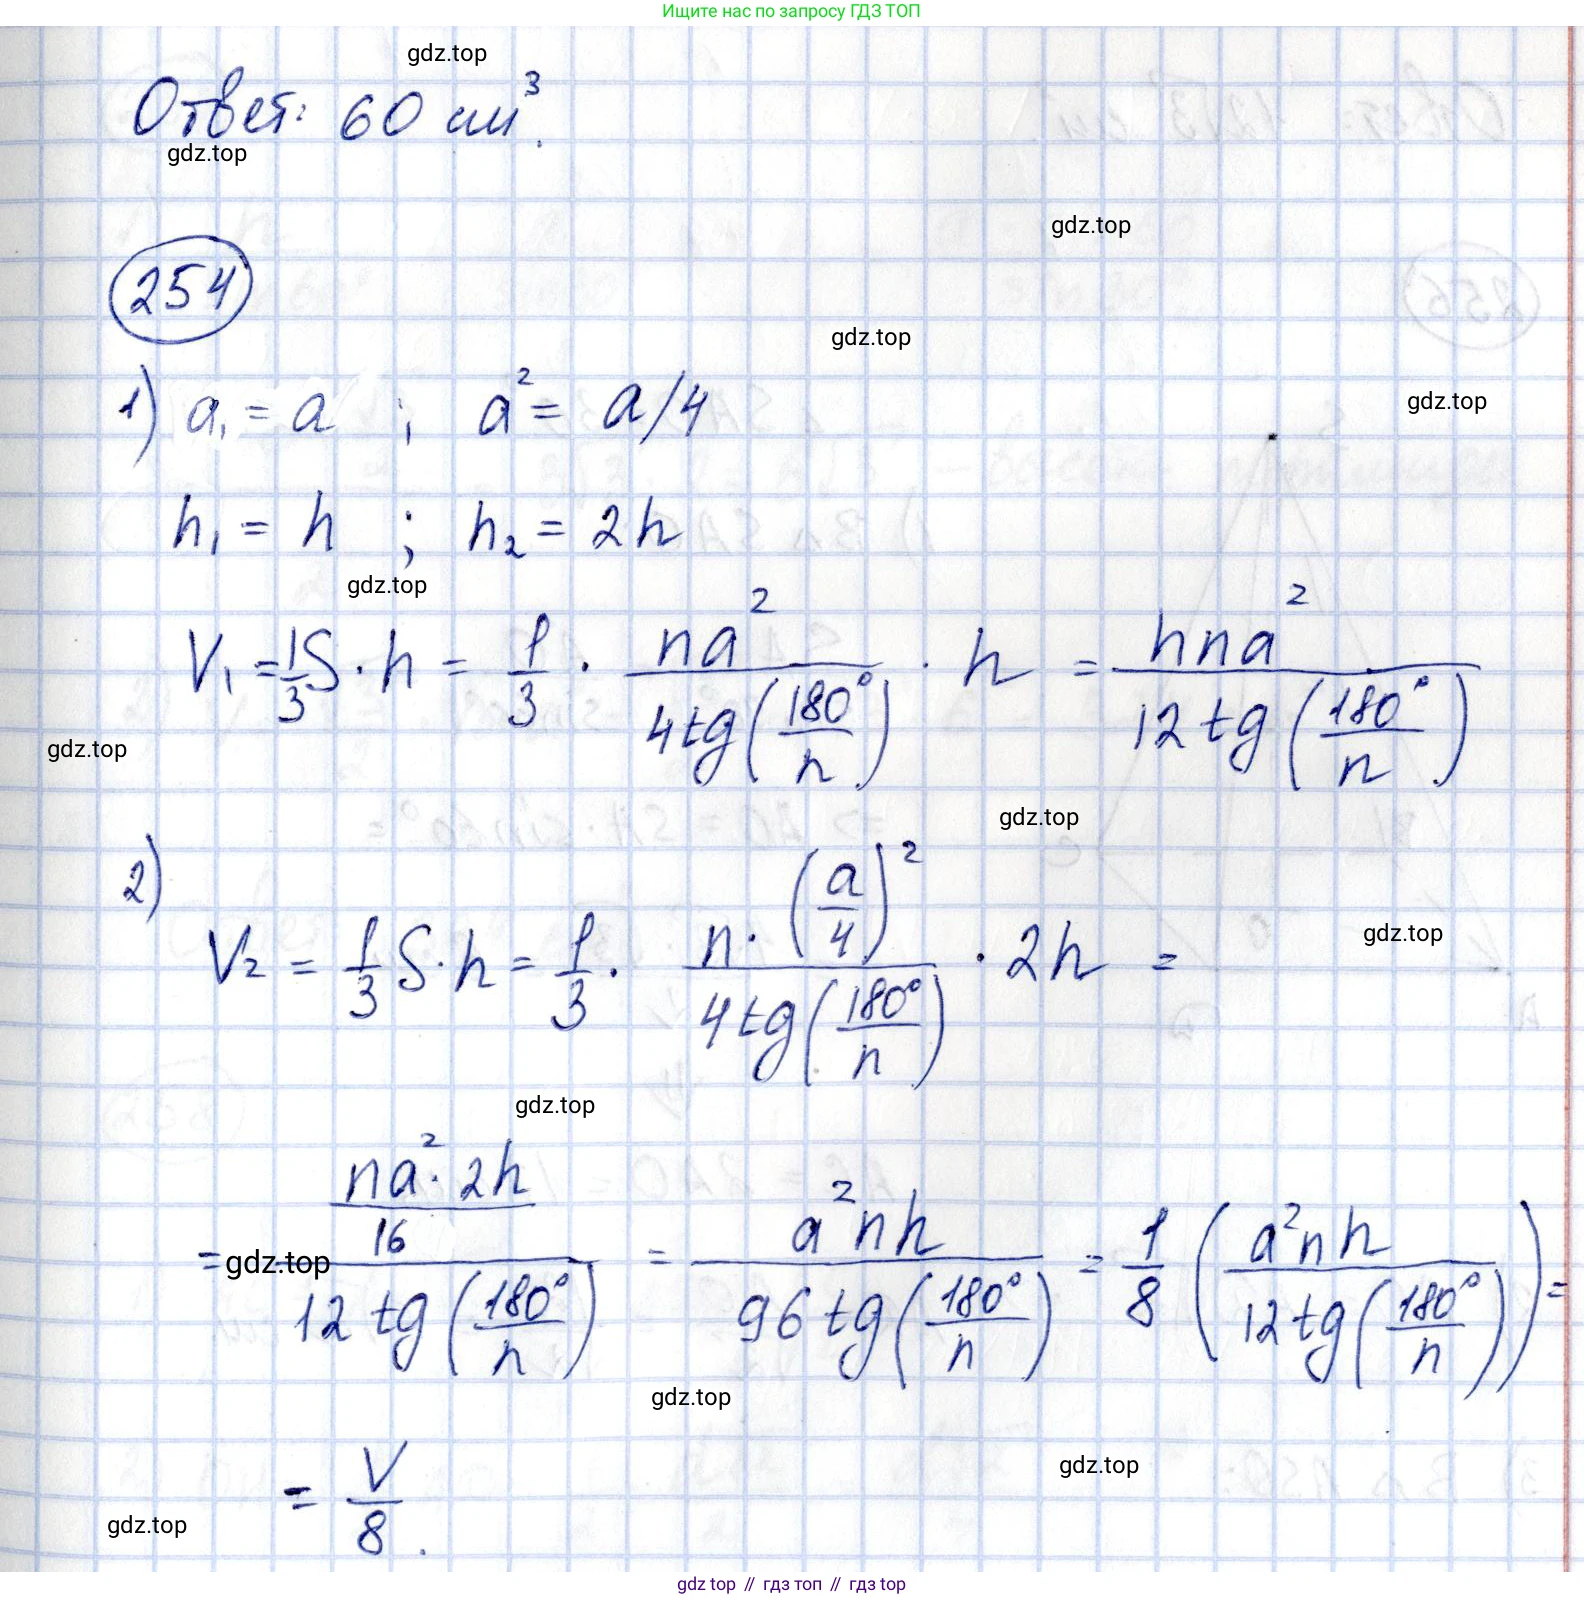 Ищите нас по запросу ГДЗ ТОП
gdz.top
Ответ: 60 см³.
gdz.top
gdz.top
254
gdz.top
1) a₁ = a ; a² = a/4
gdz.top
h₁ = h ; h₂ = 2h
gdz.top
V₁ = 1/3 S · h = 1/3 · na²/(4tg(180°/n)) · h = hna²/(12tg(180°/n))
gdz.top
gdz.top
2)
V₂ = 1/3 S · h = 1/3 · (n · (a/4)²)/(4tg(180°/n)) · 2h =
gdz.top
gdz.top
= (na² · 2h/16)/(12tg(180°/n)) = a²nh/(96tg(180°/n)) = 1/8 (a²nh/(12tg(180°/n))) =
gdz.top
gdz.top
= V/8.
gdz.top
gdz.top
gdz top // гдз топ // гдз top